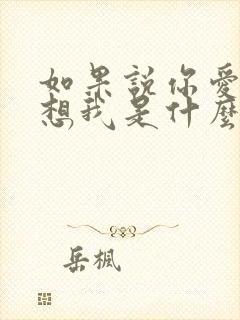 如果說你愛
想我是什麼
岳楓